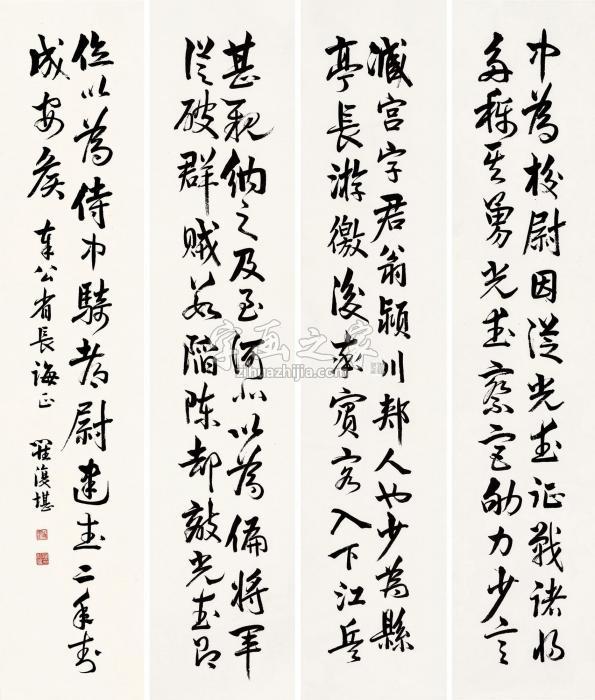 中為校尉因從光武征戰諸將
多稱其勇光武察宮勤力少言
臧宮字君翁潁川郟人也少為縣
亭長游徼後率賓客入下江兵
甚親納之及至河北以為偏將軍
從破群賊數陷陳却敵光武即
位以為侍中騎都尉建武二年封
成安侯 奉公省長誨正 羅復堪
字画之家
zihuazhijia.com